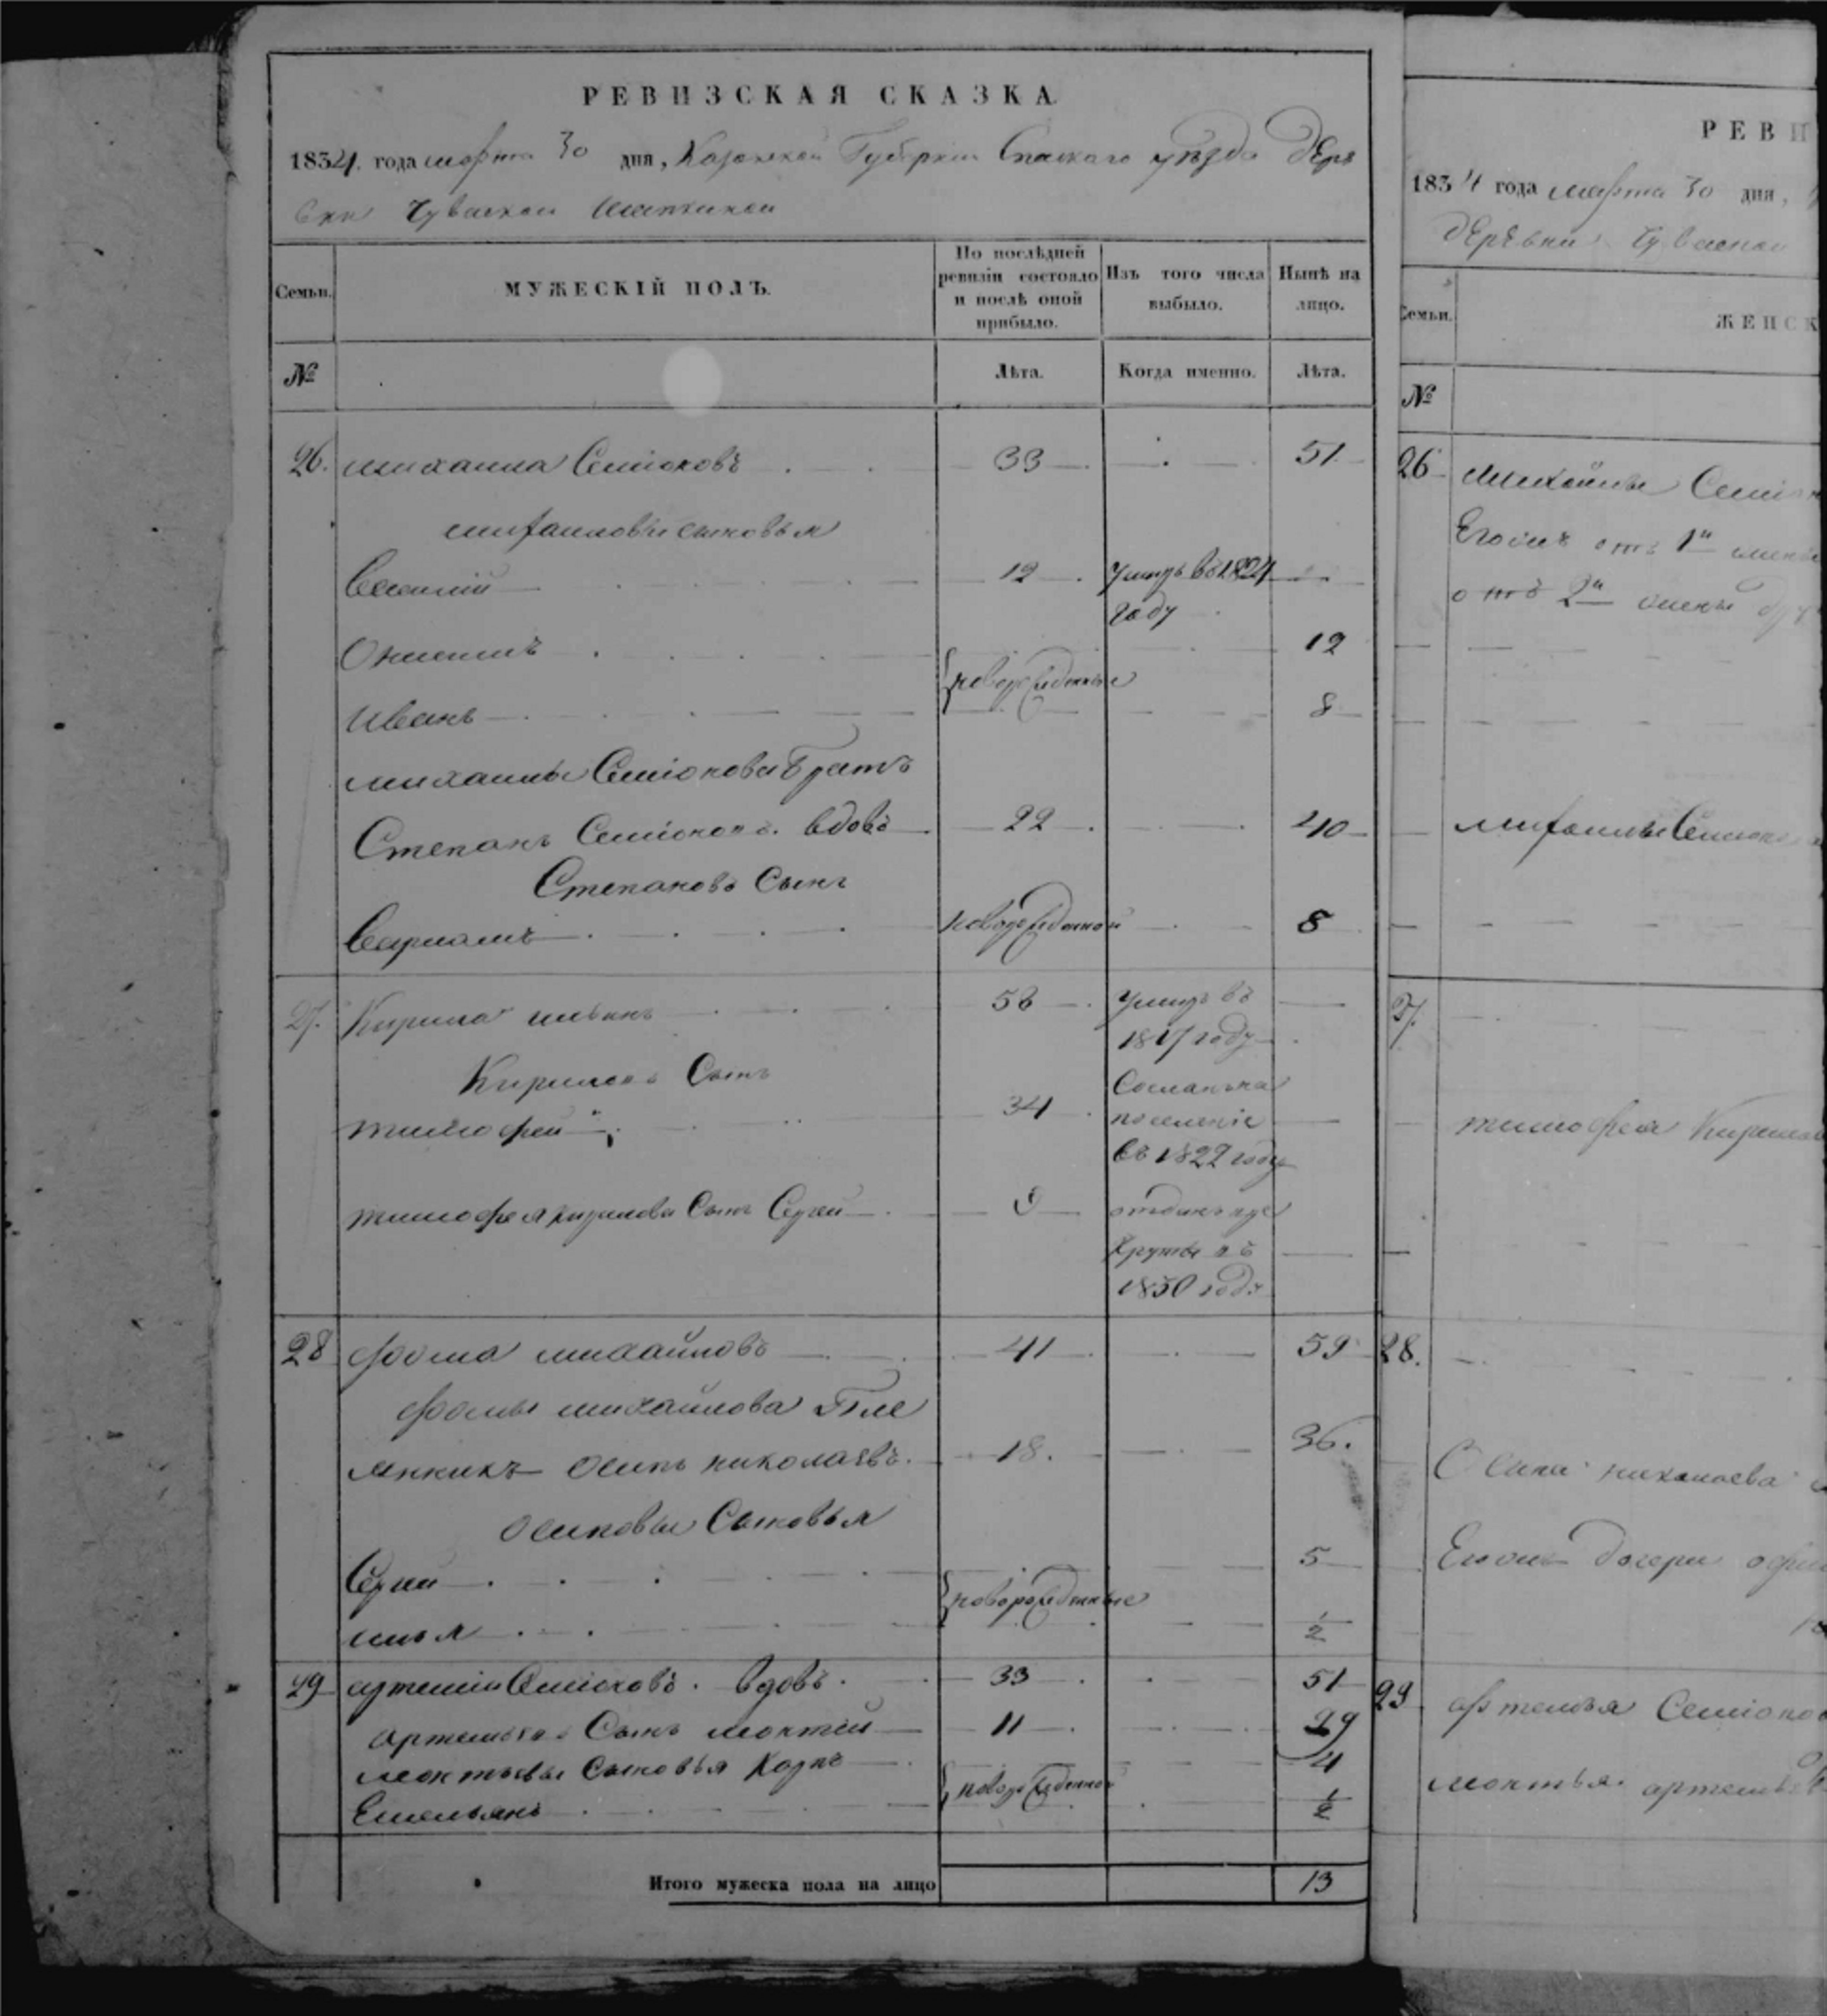 РЕВИЗСКАЯ СКАЗКА.
1834. года марта 30 дня, Казанской Губернии Спаского уѣзда Дерѣ
вни Чуваской
Семьи.
МУЖЕСКІЙ ПОЛЪ.
По послѣдней ревизіи состояло и послѣ оной прибыло.
Изъ того числа выбыло.
Нынѣ на лицо.
№
Лѣта.
Когда именно.
Лѣта.
26. михаила Семіоновъ 33 51
михаиловы сыновья
Василий 12 умиръ въ 1824
году
Онисимъ 12
{новорожденные
Иванъ 8
михаилы Семіонова братъ
Степанъ Семіоновъ. вдовъ 22 40
Степановъ Сынъ
Варламъ новорожденной 8
27. Кирила ивинъ 56 умиръ въ
1817 году
Кириловъ Сынъ
тимофей 34
Сосланъ на
поселеніе
въ 1822 году
тимофея кирилова Сынъ Сергей 9 отданъ
въ
1830 году
28 фома михайловъ 41 59
фомы михайлова пле
мянникъ осипъ николаевъ. 18. 36.
осиповы Сыновья
Сергей 5
{новорожденные
илья 1/2
29 артемій Семіоновъ. вдовъ. 33 51
артемьевъ Сынъ леонтій 11 29
леонтьевы Сыновья Карпъ 4
{новорожденной
Емельянъ 1/2
Итого мужеска пола на лицо 13
РЕВИ
1834 года марта 30 дня,
деревни Чуваской
Семьи.
ЖЕНСК
№
26 михайлы Семіон
Егожъ отъ 1й жены
отъ 2й жены
михаилы Семіонов
27.
тимофея Кирилов
28.
Осипа николаева
Егожъ дочери
29 артемья Семіонов
леонтья артемьев